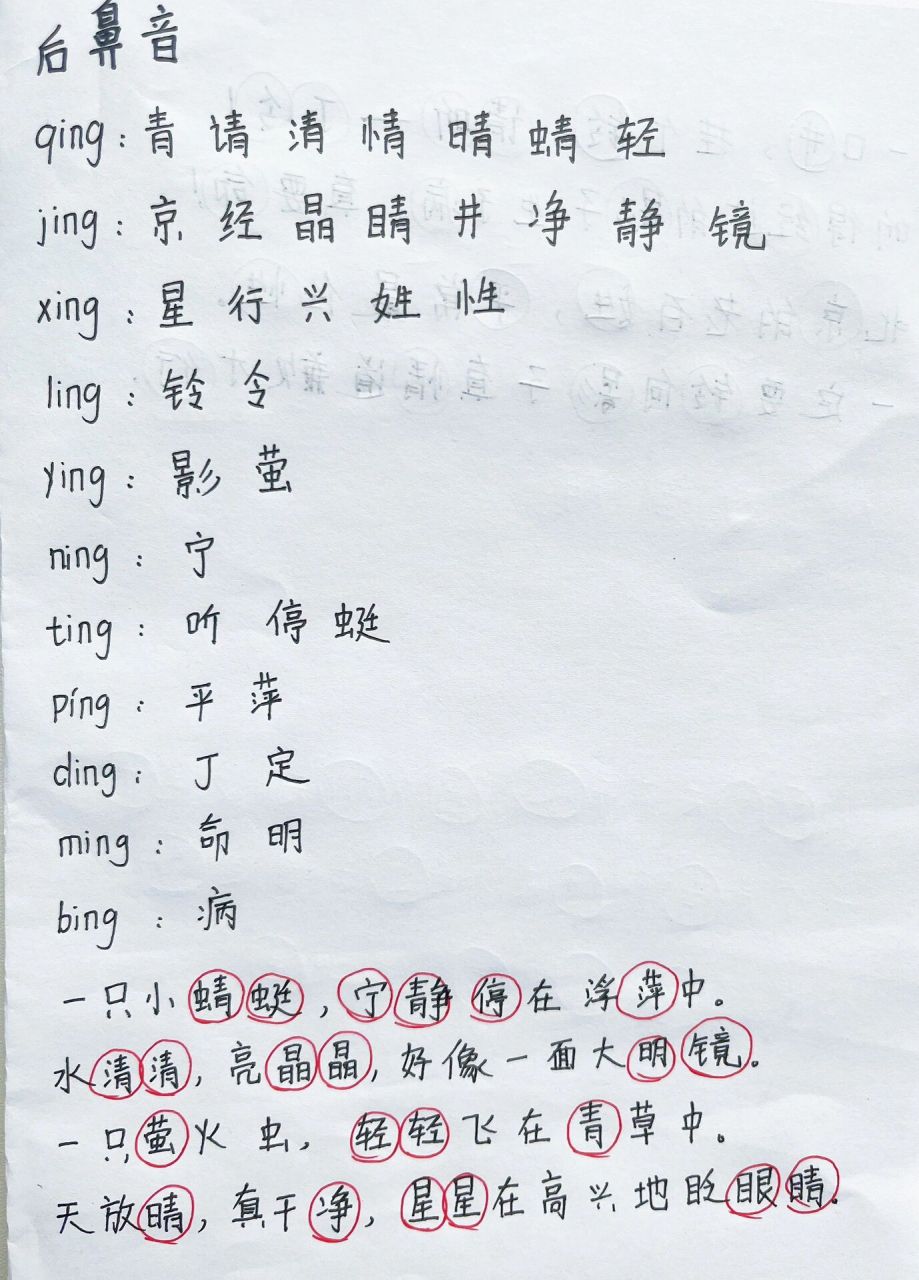 后鼻音
qing：青 请 清 情 晴 蜻 轻
jing：京 经 晶 睛 井 净 静 镜
xing：星 行 兴 姓 性
ling：铃 令
ying：影 萤
ning：宁
ting：听 停 蜓
ping：平 萍
ding：丁 定
ming：命 明
bing：病
一只小蜻蜓，宁静停在浮萍中。
水清清，亮晶晶，好像一面大明镜。
一只萤火虫，轻轻飞在青草中。
天放晴，真干净，星星在高兴地眨眼睛。